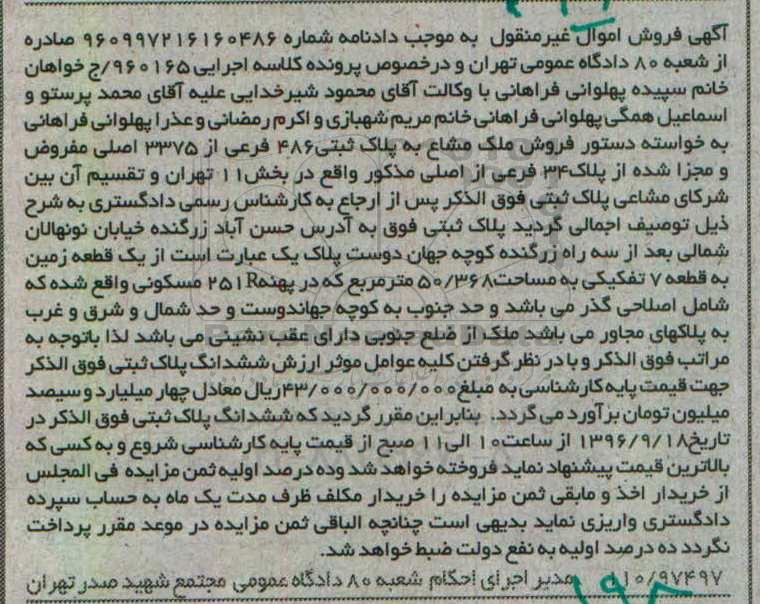 آگهی فروش اموال غیرمنقول به موجب دادنامه شماره ۹۶۰۹۹۷۲۱۶۱۶۰۴۸۶ صادره
از شعبه ۸۰ دادگاه عمومی تهران و درخصوص پرونده کلاسه اجرایی ۹۶۰۱۶۵/ج خواهان
خانم سپیده پهلوانی فراهانی با وکالت آقای محمود شیرخدایی علیه آقای محمد پرستو و
اسماعیل همگی پهلوانی فراهانی خانم مریم شهبازی و اکرم رمضانی و عذرا پهلوانی فراهانی
به خواسته دستور فروش ملک مشاع به پلاک ثبتی ۴۸۶ فرعی از ۳۳۷۵ اصلی مفروض
و مجزا شده از پلاک ۳۴ فرعی از اصلی مذکور واقع در بخش ۱۱ تهران و تقسیم آن بین
شرکای مشاعی پلاک ثبتی فوق الذکر پس از ارجاع به کارشناس رسمی دادگستری به شرح
ذیل توصیف اجمالی گردید پلاک ثبتی فوق به آدرس حسن آباد زرگنده خیابان نونهالان
شمالی بعد از سه راه زرگنده کوچه جهان دوست پلاک یک عبارت است از یک قطعه زمین
به قطعه ۷ تفکیکی به مساحت ۵۰/۳۶۸ مترمربع که در پهنه ۲۵۱R مسکونی واقع شده که
شامل اصلاحی گذر می باشد و حد جنوب به کوچه جهاندوست و حد شمال و شرق و غرب
به پلاکهای مجاور می باشد ملک از ضلع جنوبی دارای عقب نشینی می باشد لذا باتوجه به
مراتب فوق الذکر و با در نظر گرفتن کلیه عوامل موثر ارزش ششدانگ پلاک ثبتی فوق الذکر
جهت قیمت پایه کارشناسی به مبلغ ۴۳/۰۰۰/۰۰۰/۰۰۰ ریال معادل چهار میلیارد و سیصد
میلیون تومان برآورد می گردد. بنابراین مقرر گردید که ششدانگ پلاک ثبتی فوق الذکر در
تاریخ ۱۳۹۶/۹/۱۸ از ساعت ۱۰ الی ۱۱ صبح از قیمت پایه کارشناسی شروع و به کسی که
بالاترین قیمت پیشنهاد نماید فروخته خواهد شد وده درصد اولیه ثمن مزایده فی المجلس
از خریدار اخذ و مابقی ثمن مزایده را خریدار مکلف ظرف مدت یک ماه به حساب سپرده
دادگستری واریزی نماید بدیهی است چنانچه الباقی ثمن مزایده در موعد مقرر پرداخت
نگردد ده درصد اولیه به نفع دولت ضبط خواهد شد.
۱۱۰/۹۷۴۹۷ مدیر اجرای احکام شعبه ۸۰ دادگاه عمومی مجتمع شهید صدر تهران
۱۹۸